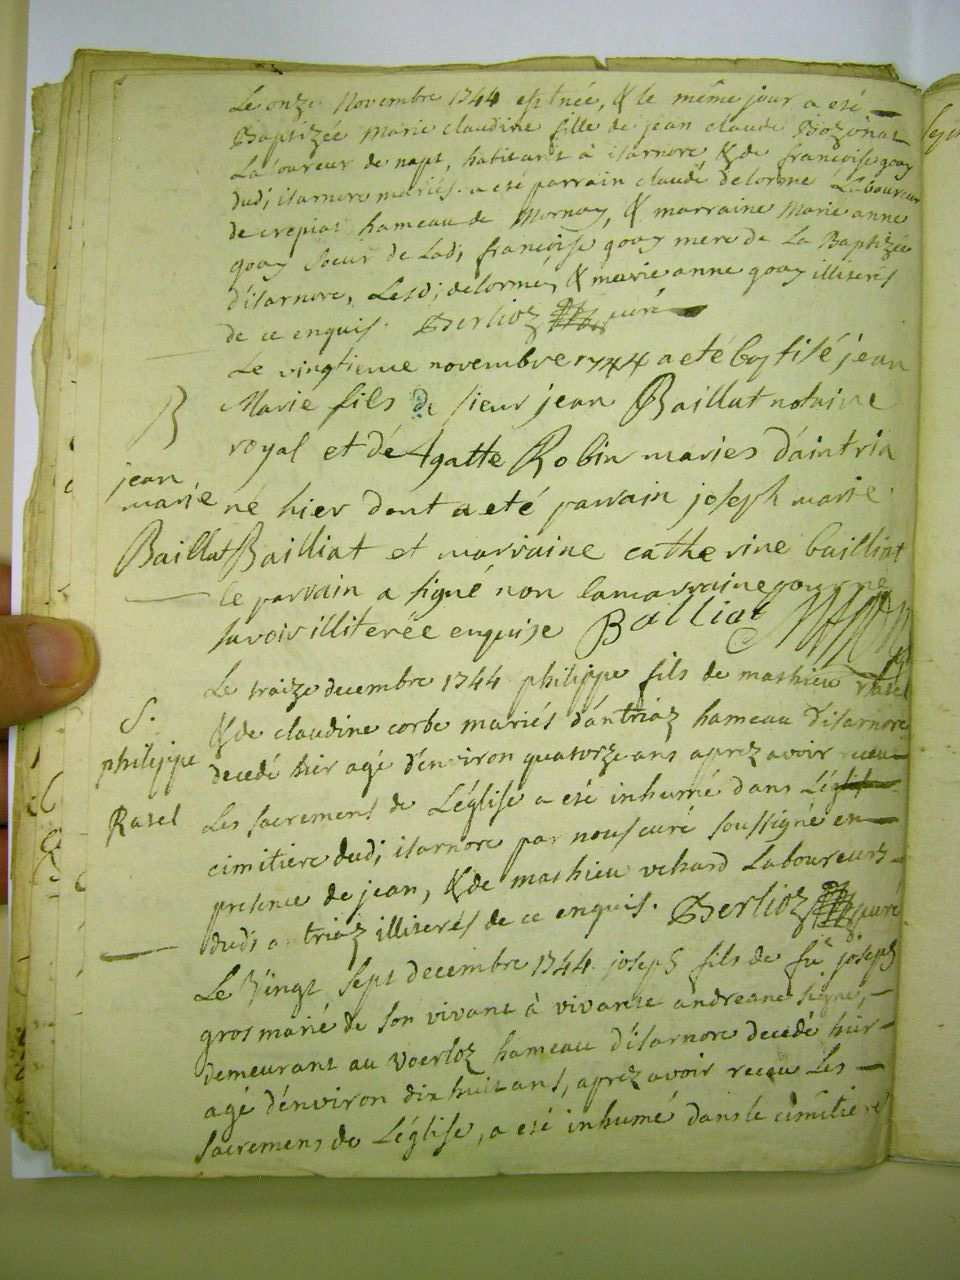 Le onze Novembre 1744 est née, & le même jour a esté
Baptizée Marie claudine fille de jean claude Bozonat
Laboureur de napt, habitant à isarnore, & de françoise gouy
dudi isarnore mariés. a esté parrain claude delorme Laboureur
de crepiat hameau de Mornay, & marraine Marie anne
gouy soeur de Ladi françoise gouy mere de La Baptizée
d'isarnore, Lesdi delorme, & marie anne gouy illiterés
de ce enquis. Berlioz curé
Le vingtieme novembre 1744 a eté baptisé jean
Marie fils de sieur jean Baillat notaire
royal et dé Agatte Robin maries d'aintria
né hier dont a eté parrain joseph marie
Bailliat et marraine catherine bailliat
le parrain a signé non la marraine pour ne
savoir illiterée enquise Bailliat
B
jean
marie
Baillat
Le traize decembre 1744 philippe fils de mathieu rasel
& de claudine corbe mariés d'antriaz hameau d'isarnore
decedé hier agé d'environ quatorze ans aprez avoir receu
Les sacremens de L'église a esté inhumé dans
cimitiere dudi isarnore par nous curé soussigné en
presence de jean, & de mathieu vehard Laboureurs
dudi antriaz illiterés de ce enquis. Berlioz curé
S.
philippe
Rasel
Le Vingt sept decembre 1744 joseph fils de fu joseph
gros marié de son vivant à vivante andreane
demeurant au voerloz hameau d'isarnore decedé hier
agé d'environ dix huit ans, aprez avoir receu Les
sacremens de L'église, a esté inhumé dans le cimitiere